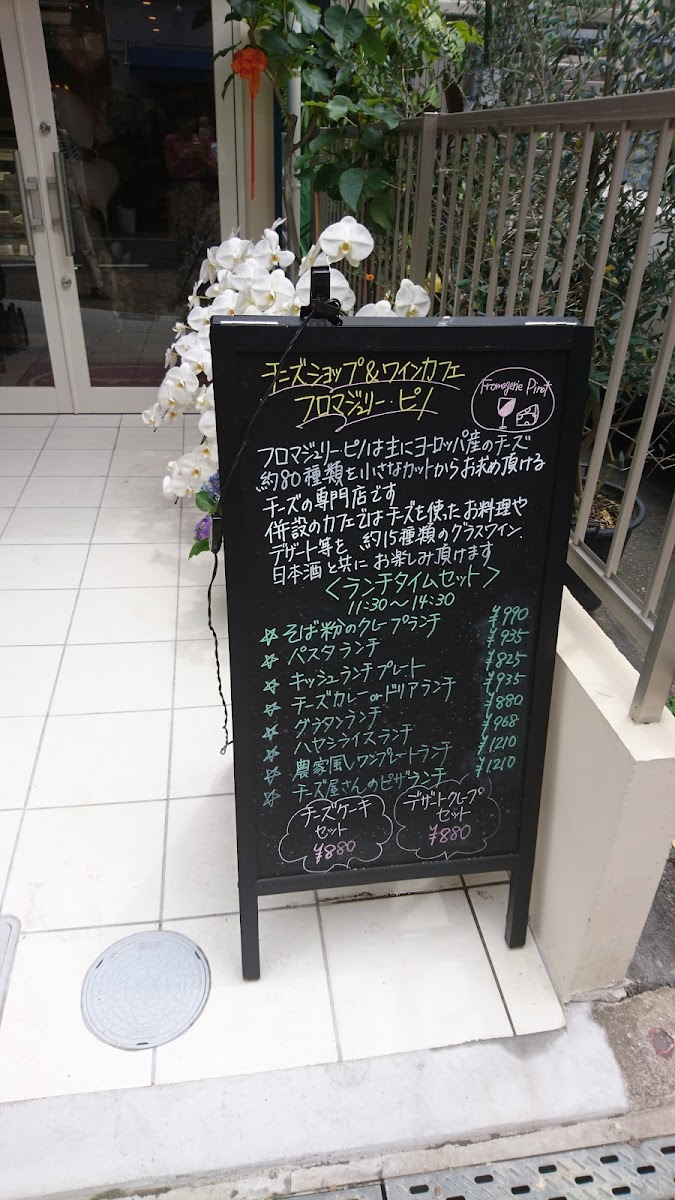 チーズショップ&ワインカフェ
フロマジュリー・ピノ
Fromagerie Pinot
フロマジュリー・ピノは主にヨーロッパ産のチーズ
約80種類を小さなカットからお求め頂ける
チーズの専門店です
併設のカフェではチーズを使ったお料理や
デザート等を 約15種類のグラスワイン、
日本酒と共にお楽しみ頂けます
<ランチタイムセット>
11:30~14:30
☆ そば粉のクレープランチ ¥990
☆ パスタランチ ¥935
☆ キッシュランチプレート ¥825
☆ チーズカレーorドリアランチ ¥935
☆ グラタンランチ ¥880
☆ ハヤシライスランチ ¥968
☆ 農家風ワンプレートランチ ¥1210
☆ チーズ屋さんのピザランチ ¥1210
チーズケーキ
セット
¥880
デザートクレープ
セット
¥880